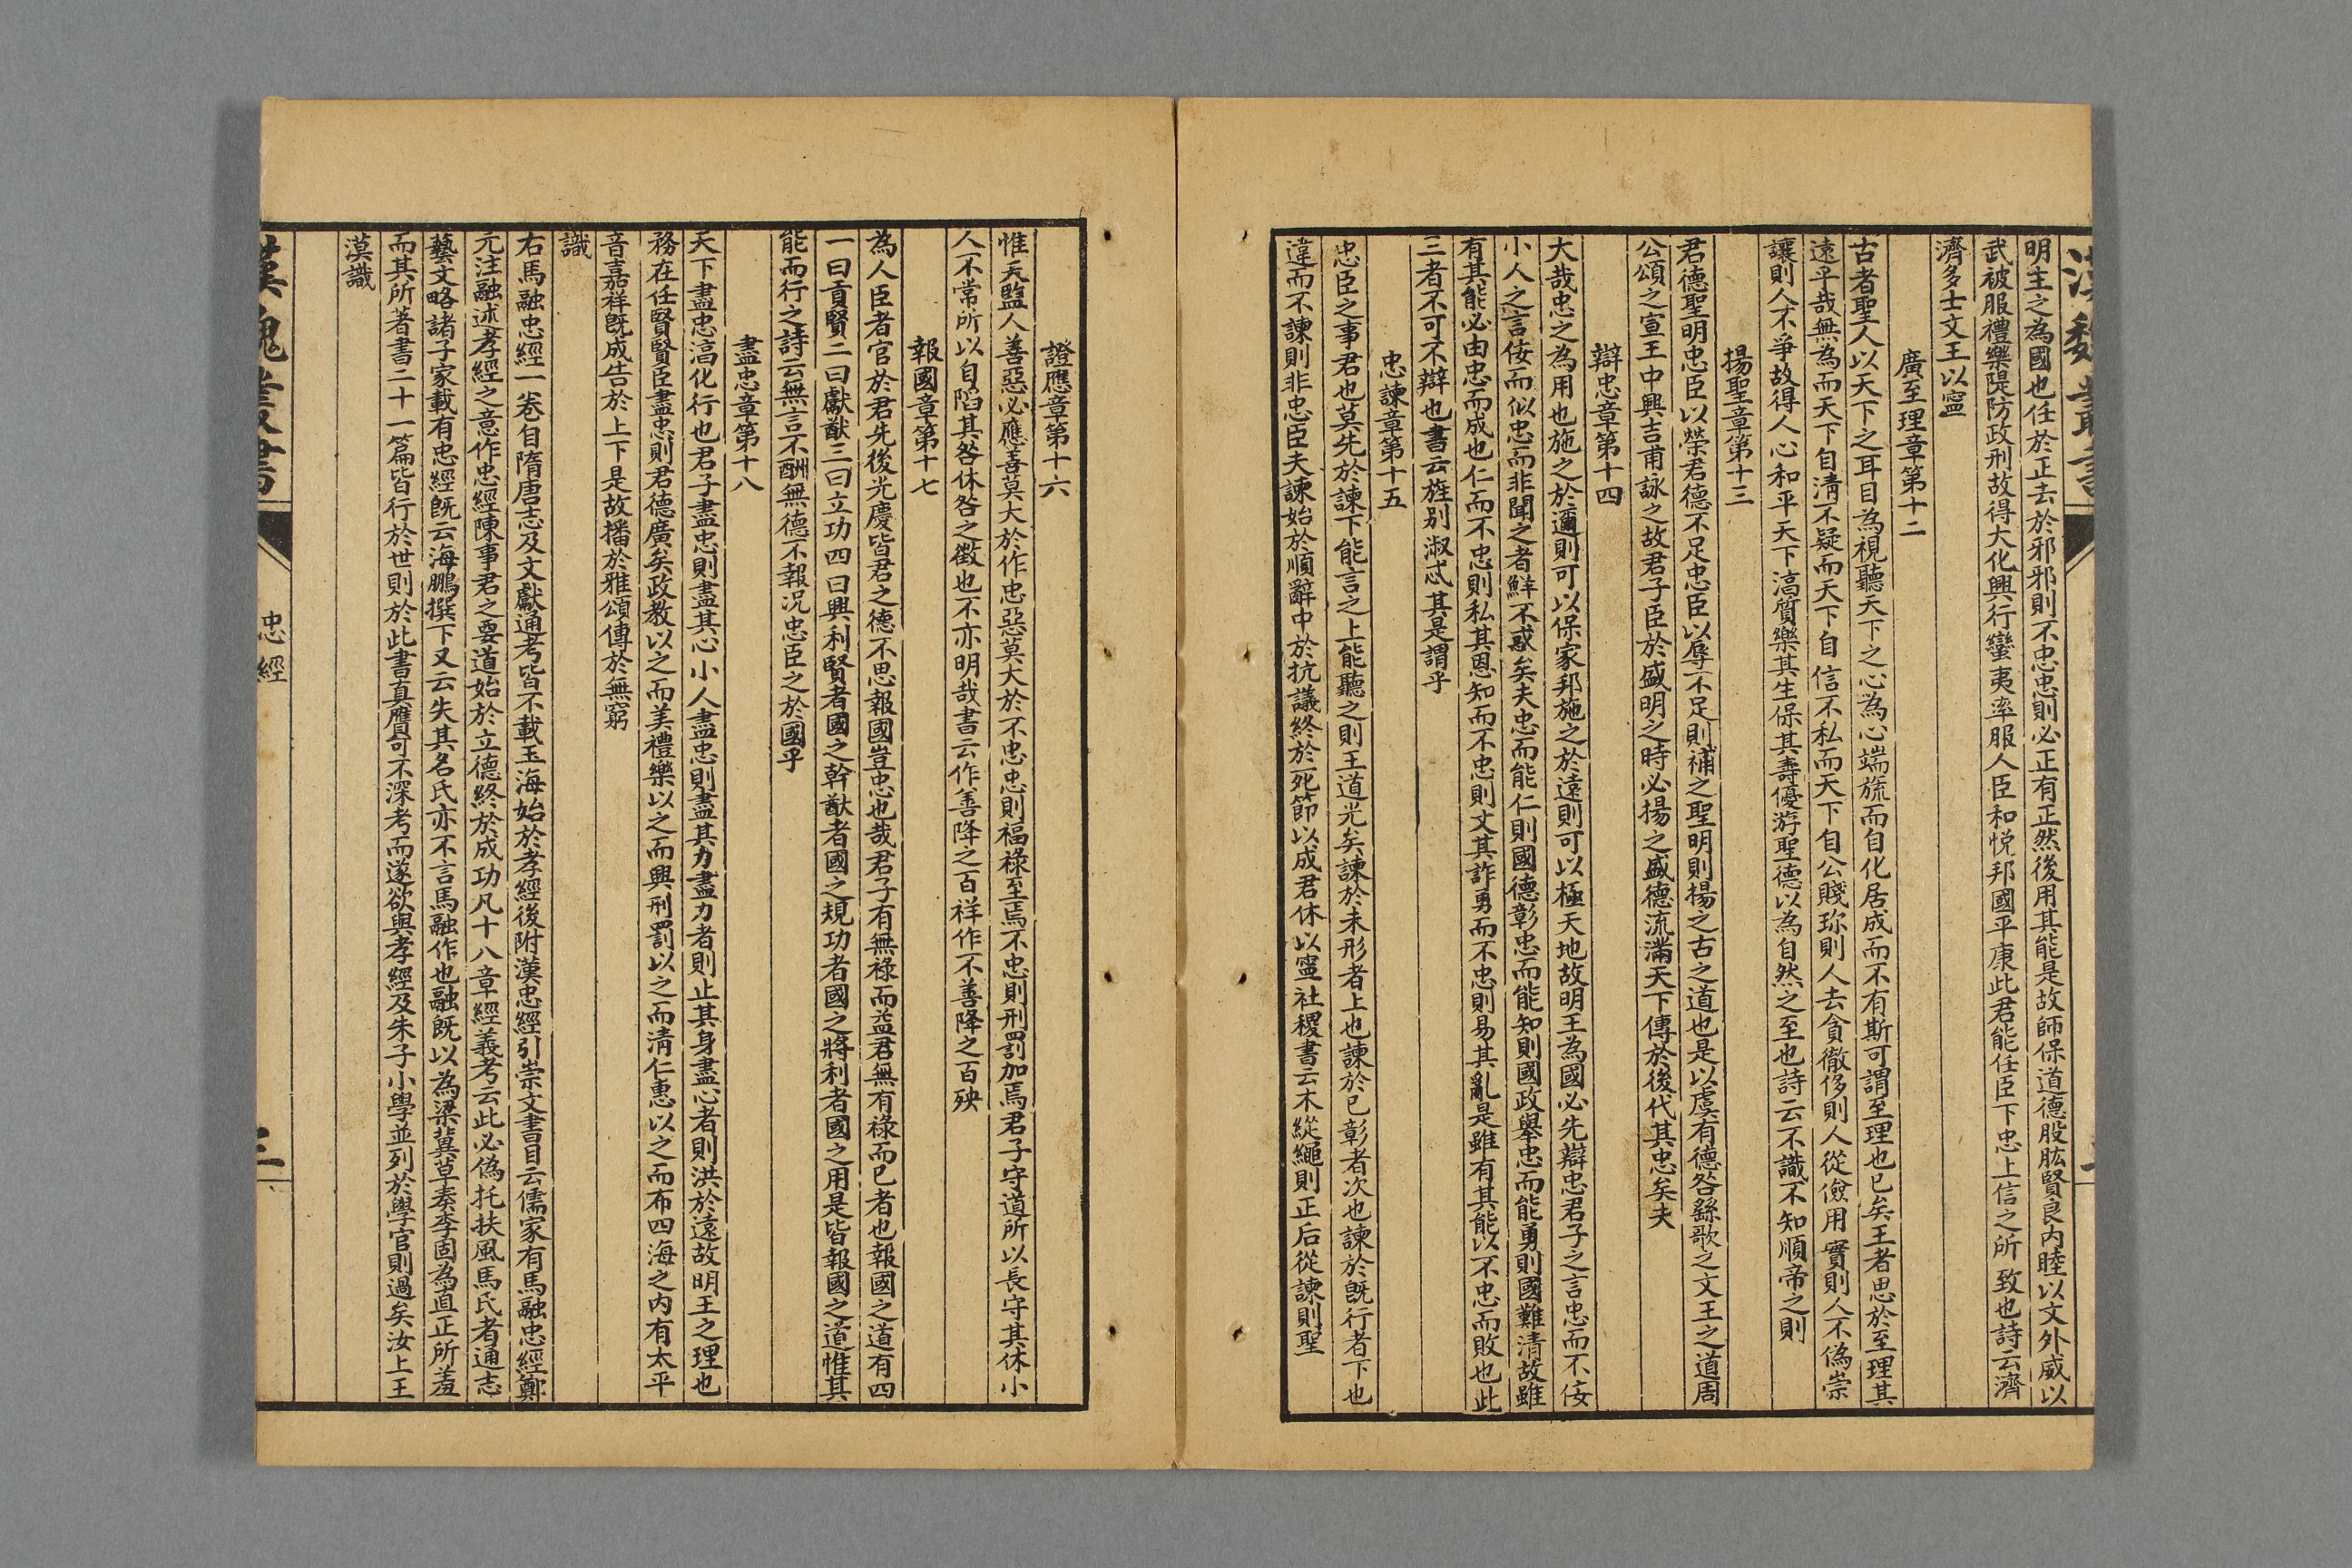 漢魏叢書
明主之為國也任於正去於邪邪則不忠忠則必正有正然後用其能是故師保道德股肱賢良內睦以文外威以
武被服禮樂隄防政刑故得大化興行蠻夷率服人臣和悅邦國平康此君能任臣下忠上信之所致也詩云濟
濟多士文王以寍
廣至理章第十二
古者聖人以天下之耳目為視聽天下之心為心端旒而自化居成而不有斯可謂至理也已矣王者思於至理其
遠乎哉無為而天下自清不疑而天下自信不私而天下自公賤珍則人去貪徹侈則人從儉用實則人不偽崇
讓則人不爭故得人心和平天下湻質樂其生保其壽優游聖德以為自然之至也詩云不識不知順帝之則
揚聖章第十三
君德聖明忠臣以榮君德不足忠臣以辱不足則補之聖明則揚之古之道也是以虞有德咎繇歌之文王之道周
公頌之宣王中興吉甫詠之故君子臣於盛明之時必揚之盛德流滿天下傳於後代其忠矣夫
辯忠章第十四
大哉忠之為用也施之於邇則可以保家邦施之於遠則可以極天地故明王為國必先辯忠君子之言忠而不佞
小人之言佞而似忠而非聞之者鮮不惑矣夫忠而能仁則國德彰忠而能知則國政舉忠而能勇則國難清故雖
有其能必由忠而成也仁而不忠則私其恩知而不忠則文其詐勇而不忠則易其亂是雖有其能以不忠而敗也此
三者不可不辯也書云旌別淑忒其是謂乎
忠諫章第十五
忠臣之事君也莫先於諫下能言之上能聽之則王道光矣諫於未形者上也諫於已彰者次也諫於既行者下也
違而不諫則非忠臣夫諫始於順辭中於抗議終於死節以成君休以寍社稷書云木從繩則正后從諫則聖
證應章第十六
惟天監人善惡必應善莫大於作忠惡莫大於不忠忠則福祿至焉不忠則刑罰加焉君子守道所以長守其休小
人不常所以自陷其咎休咎之徵也不亦明哉書云作善降之百祥作不善降之百殃
報國章第十七
為人臣者官於君先後光慶皆君之德不思報國豈忠也哉君子有無祿而益君無有祿而已者也報國之道有四
一曰貢賢二曰獻猷三曰立功四曰興利賢者國之幹猷者國之規功者國之將利者國之用是皆報國之道惟其
能而行之詩云無言不酬無德不報況忠臣之於國乎
盡忠章第十八
天下盡忠湻化行也君子盡忠則盡其心小人盡忠則盡其力盡力者則止其身盡心者則洪於遠故明王之理也
務在任賢賢臣盡忠則君德廣矣政教以之而美禮樂以之而興刑罰以之而清仁惠以之而布四海之內有太平
音嘉祥既成告於上下是故播於雅頌傳於無窮
識
右馬融忠經一卷自隋唐志及文獻通考皆不載玉海始於孝經後附漢忠經引崇文書目云儒家有馬融忠經鄭
元注融述孝經之意作忠經陳事君之要道始於立德終於成功凡十八章經義考云此必偽托扶風馬氏者通志
藝文略諸子家載有忠經既云海鵬撰下又云失其名氏亦不言馬融作也融既以為梁冀草奏李固為直正所羞
而其所著書二十一篇皆行於世則於此書真贋可不深考而遂欲與孝經及朱子小學並列於學官則過矣汝上王
漠識
漢魏叢書
忠經
三